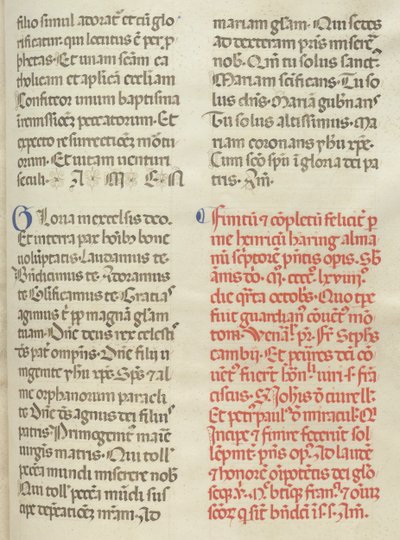 filio simul adorat᷑ et cũ glo
rificatur. qui locutus ẽ per ꝓ
phetas. Et unam scãm ca
tholicam et aplicã eccliam
Confiteor unum baptisma
ĩ remissiõeʒ peccatorum. Et
expecto resurrectioneʒ mortu
orum. Et vitam venturi
seculi. A M E N
Gloria in excelsis deo.
Et in terra pax hoĩbʒ bone
volũptatis. Laudamus te.
Bñdicimus te. Adoramus
te. Glõificamus te. Gratias
agimus t᷑ ꝓp magnã glam
tuam. Dñe deus rex celestis
dˢ pat᷑ omp̃ns. Dñe fili u
nigenite yhu xp̃e. Sp̃s ⁊ al
me orphanorum paracli
te. Dñe dˢ agnus dei filius
patris. Primogenit᷑ marie
virginis matris. Qui toll᷑
pctã mundi miserere nob̃
Qui toll᷑ pctã mũdi sus
cipe dep̃catiõeʒ nr̃am. Ad
mariam glam. Qui sedes
ad dexteram pr̃is miserẽ
nob̃. Qm̃ tu solus sanct᷑.
Mariam scificans. Tu so
lus dñs. Mariã gubñans
Tu solus altissimus. Ma
riam coronans yhu xp̃e.
Cum scõ sp̃u ĩ gloria dei pa
tris. Am̃.
Finitũ ⁊ cõpletũ feliciter p
me henricũ haring alma
nũ sc̃ptorẽ p̃ntis opis. Sb
ãnis dõ. Mº. ccccº. lxviiiº.
die q̃rta octobr̃s. Quo tp̃e
fuit guardian᷑ cõuet᷑ mõ
tom̃. Venal᷑. pr̃. Fr̃ Stephs
cambii. Et p̃sides dci cõ
uẽt᷑ fuert̃ hõn̾ uiri. s. frã
ciscus. S. Johis d᷑ ciurell᷑.
Et petr᷑ paul᷑ d᷑ miracul᷑. Qi
incipe ⁊ finire fecerũt sol
lẽpnit᷑ p̃ns op᷑. Ad laudẽ
⁊ honorẽ oip̃otẽtis dei glo
seq᷑ v. M. btiq᷑ franc᷑ ⁊ oiũʒ
scõr̃ q̃ sit bñdict᷑ ĩ s. s. Am̃.